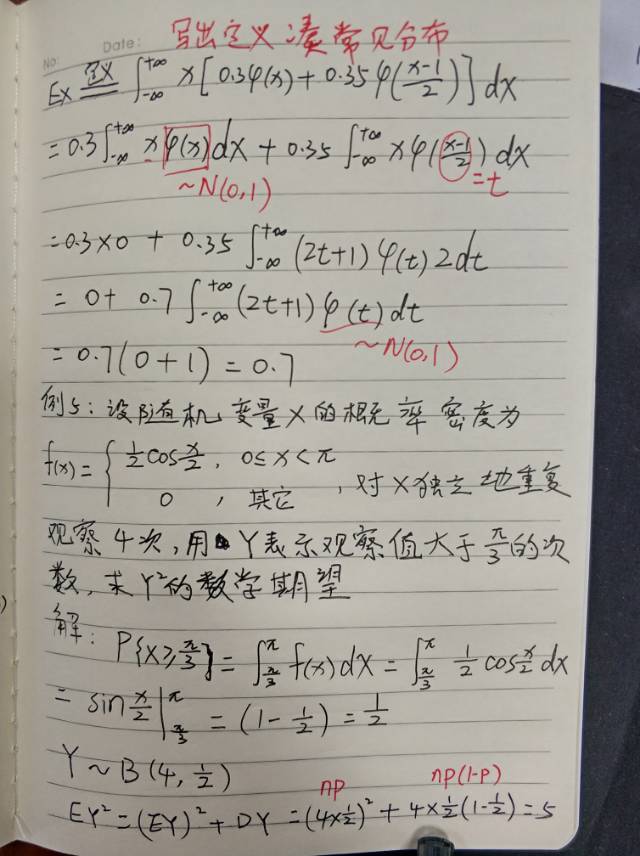 No: Date: 写出定义凑常见分布
EX 定义== ∫_{-∞}^{+∞} x[0.3φ(x)+0.35φ((x-1)/2)]dx
=0.3∫_{-∞}^{+∞} xφ(x)dx + 0.35∫_{-∞}^{+∞} xφ((x-1)/2)dx
~N(0,1) =t
=0.3×0 + 0.35∫_{-∞}^{+∞}(2t+1)φ(t)2dt
= 0+ 0.7∫_{-∞}^{+∞}(2t+1)φ(t)dt
= 0.7(0+1) = 0.7 ~N(0,1)
例5:设随机变量X的概率密度为
f(x)={ 1/2 cos x/2, 0≤x<π
0 , 其它 ,对X独立地重复
观察4次,用Y表示观察值大于π/3的次
数,求Y²的数学期望
解: P{X≥π/3}=∫_{π/3}^{π} f(x)dx=∫_{π/3}^{π} 1/2 cos x/2 dx
= sin x/2 |_{π/3}^{π} = (1-1/2)=1/2
Y~B(4,1/2) np np(1-p)
EY²=(EY)²+DY =(4×1/2)²+4×1/2(1-1/2)=5